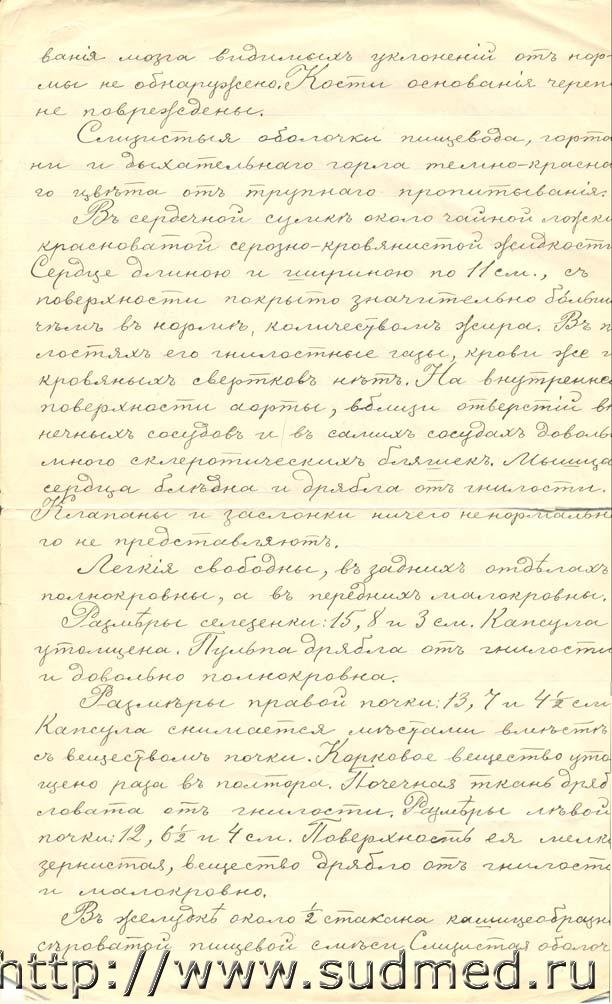 ванія мозга видимыхъ уклоненій отъ нор-
мы не обнаружено. Кости основанія череп
не повреждены.
Слизистыя оболочки пищевода, горта
ни и дыхательнаго горла темно-красна
го цвѣта отъ трупнаго пропитыванія.
Въ сердечной сумкѣ около чайной ложки
красноватой серозно-кровянистой жидкости
Сердце длиною и шириною по 11 см., съ
поверхности покрыто значительно большим
чѣмъ въ нормѣ, количествомъ жира. Въ п
лостяхъ его гнилостные газы, крови же и
кровяныхъ свертковъ нѣтъ. На внутренне
поверхности аорты, вблизи отверстій вѣ
нечныхъ сосудовъ и въ самихъ сосудахъ доволь
много склеротическихъ бляшекъ. Мышца
сердца блѣдна и дрябла отъ гнилости.
Клапаны и заслонки ничего ненормально
го не представляютъ.
Легкія свободны, въ заднихъ отдѣлахъ
полнокровны, а въ переднихъ малокровны.
Размѣры селезенки: 15, 8 и 3 см. Капсула
утолщена. Пульпа дрябла отъ гнилости
и довольно полнокровна.
Размѣры правой почки: 13, 7 и 4½ см
Капсула снимается мѣстами вмѣстѣ
съ веществомъ почки. Корковое вещество уто
щено раза въ полтора. Почечная ткань дряб
ловата отъ гнилости. Размѣры лѣвой
почки: 12, 6½ и 4 см. Поверхность ея мелко
зернистая, вещество дрябло отъ гнилости
и малокровно.
Въ желудкѣ около ½ стакана кашицеобразно
сѣроватой пищевой смѣси. Слизистая оболоч
http://www.sudmed.ru